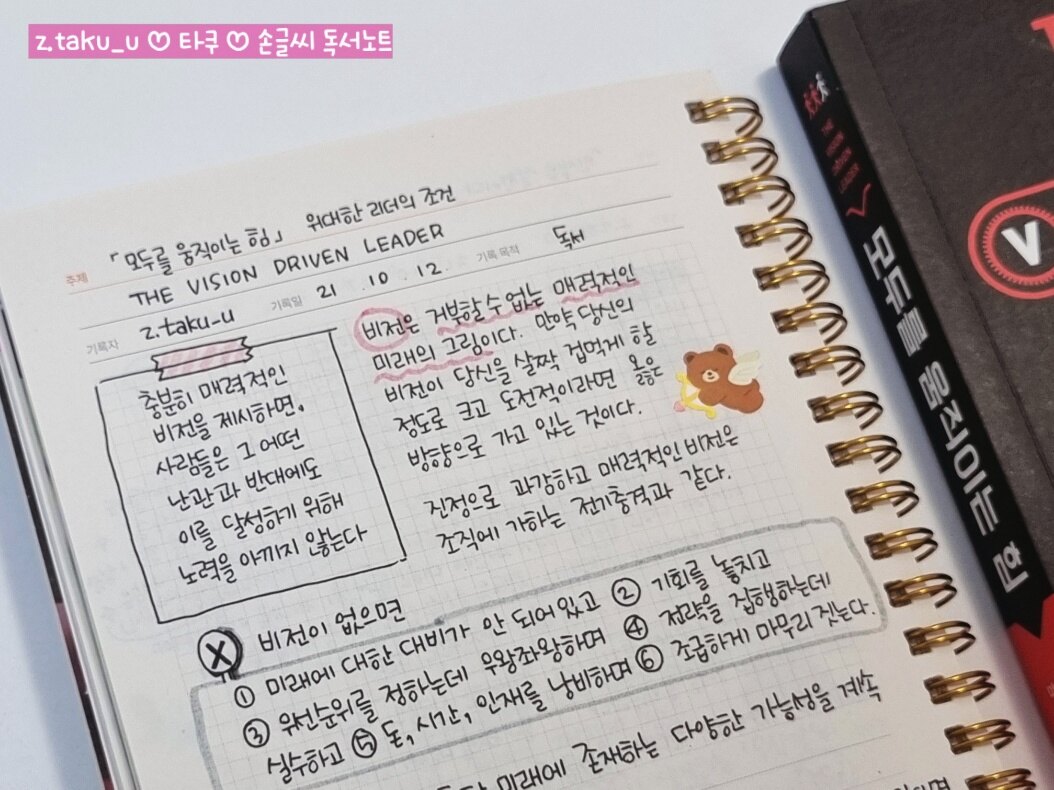 z.taku_u ♡ 타쿠 ♡ 손글씨 독서노트
주제 「모두를 움직이는 힘」 위대한 리더의 조건
THE VISION DRIVEN LEADER
기록자 z.taku_u 기록일 21 . 10 . 12. 기록 목적 독서
충분히 매력적인
비전을 제시하면,
사람들은 그 어떤
난관과 반대에도
이를 달성하기 위해
노력을 아끼지 않는다
비전은 거부할 수 없는 매력적인
미래의 그림이다. 만약 당신의
비전이 당신을 살짝 겁먹게 할
정도로 크고 도전적이라면 옳은
방향으로 가고 있는 것이다.
진정으로 과감하고 매력적인 비전은
조직에 가하는 전기충격과 같다.
X 비전이 없으면
① 미래에 대한 대비가 안 되어있고 ② 기회를 놓치고
③ 우선순위를 정하는데 우왕좌왕하며 ④ 전략을 집행하는데
실수하고 ⑤ 돈, 시간, 인재를 낭비하며 ⑥ 조급하게 마무리 짓는다.
미래에 존재하는 다양한 가능성을 계속
THE
VISION
DRIVEN
LEADER
모두를 움직이는 힘
V